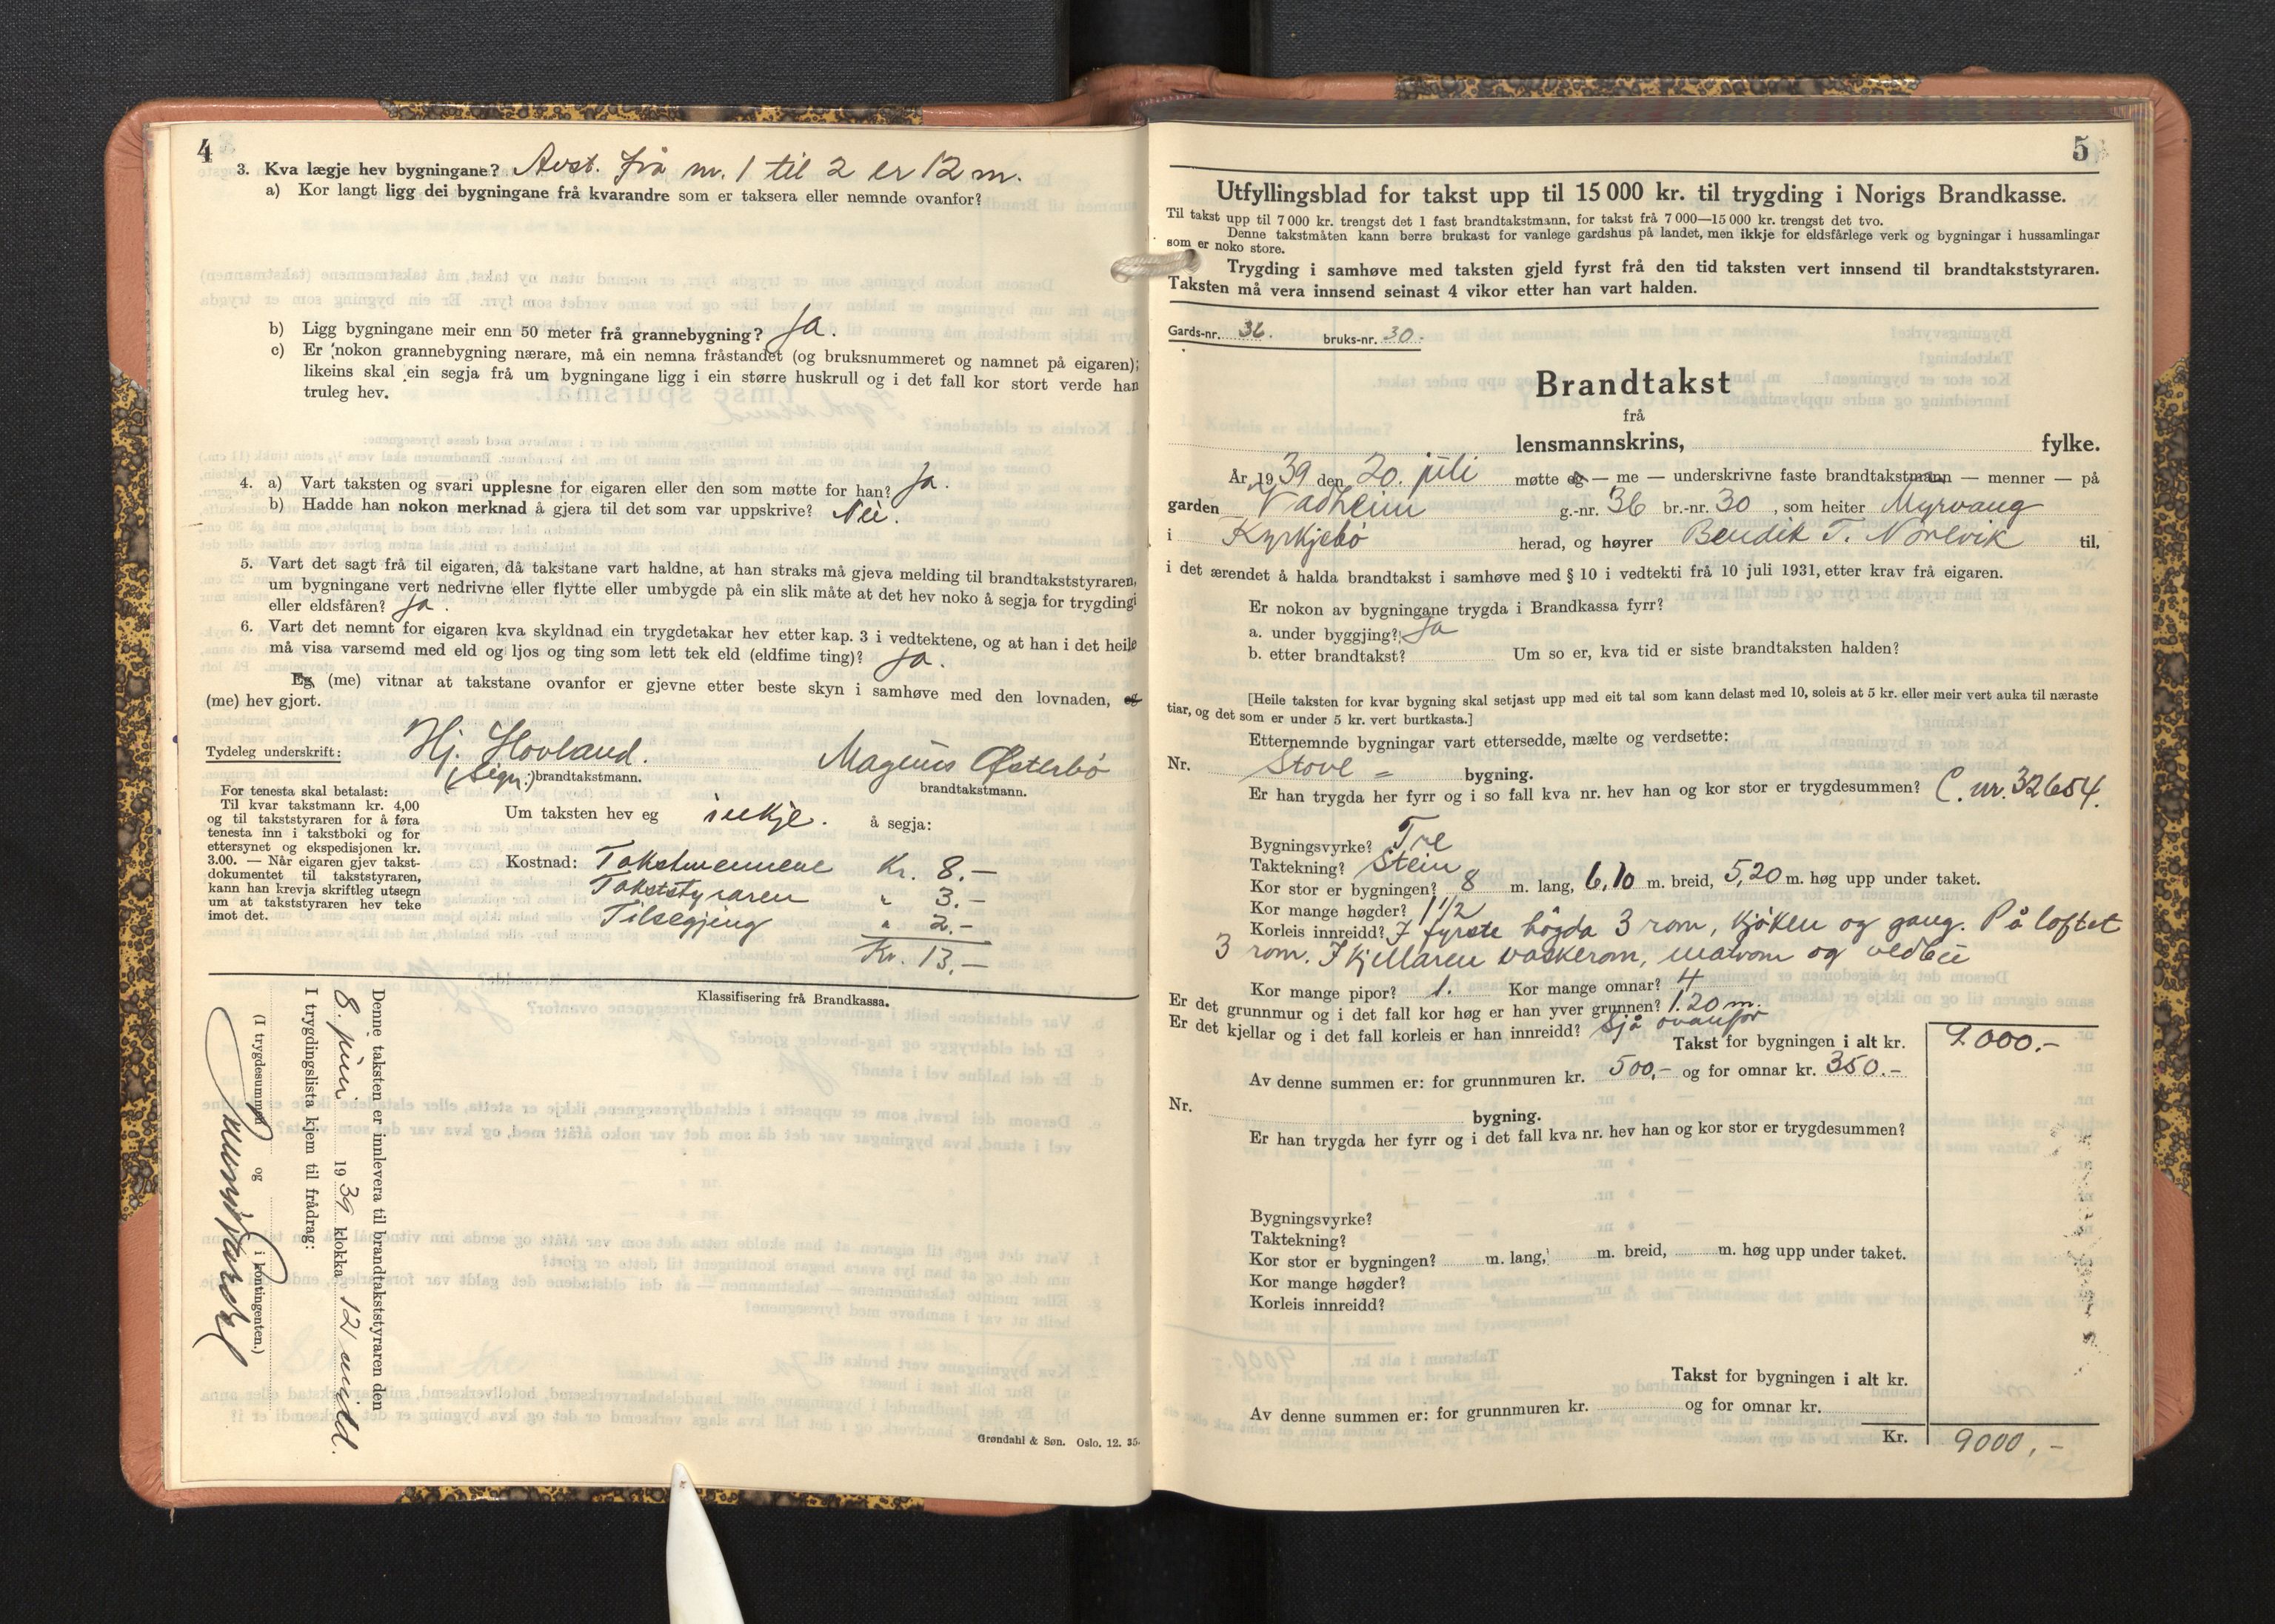 4
3. Kva lægje hev bygningane? Avst. frå nr. 1 til 2 er 12 m.
a) Kor langt ligg dei bygningane frå kvarandre som er taksera eller nemnde ovanfor?
b) Ligg bygningane meir enn 50 meter frå grannebygning? Ja.
c) Er nokon grannebygning nærare, må ein nemna fråstandet (og bruksnummeret og namnet på eigaren);
likeins skal ein segja frå um bygningane ligg i ein større huskrull og i det fall kor stort verde han
truleg hev.
4. a) Vart taksten og svari upplesne for eigaren eller den som møtte for han? Ja.
b) Hadde han nokon merknad å gjera til det som var uppskrive? Nei.
5. Vart det sagt frå til eigaren, då takstane vart haldne, at han straks må gjeva melding til brandtakststyraren,
um bygningane vert nedrivne eller flytte eller umbygde på ein slik måte at det hev noko å segja for trygdingi
eller eldsfåren? Ja.
6. Vart det nemnt for eigaren kva skyldnad ein trygdetakar hev etter kap. 3 i vedtektene, og at han i det heile
må visa varsemd med eld og ljos og ting som lett tek eld (eldfime ting)? Ja.
Eg (me) vitnar at takstane ovanfor er gjevne etter beste skyn i samhøve med den lovnaden, eg
(me) hev gjort.
Tydeleg underskrift: Hj. Hovland. Magnus Østerbø
(Sign.) brandtakstmann. brandtakstmann.
For tenesta skal betalast:
Til kvar takstmann kr. 4,00
og til takststyraren for å føra
tenesta inn i takstboki og for
ettersynet og ekspedisjonen kr.
3.00. — Når eigaren gjev takst-
dokumentet til takststyraren,
kann han krevja skriftleg utsegn
um at takststyraren hev teke
imot det.
Um taksten hev eg inkje. å segja:
Kostnad: Takstmennene Kr. 8.—
Takststyraren " 3.—
Tilsegjing " 2.—
Kr. 13.—
Klassifisering frå Brandkassa.
Denne taksten er innlevera til brandtakststyraren den
8. juni 1939 klokka 12 midd.
I trygdingslista kjem til frådrag:
(I trygdesummen og i kontingenten.)
Grøndahl & Søn. Oslo. 12. 35.
5
Utfyllingsblad for takst upp til 15 000 kr. til trygding i Norigs Brandkasse.
Til takst upp til 7 000 kr. trengst det 1 fast brandtakstmann, for takst frå 7 000—15 000 kr. trengst det tvo.
Denne takstmåten kann berre brukast for vanlege gardshus på landet, men ikkje for eldsfårlege verk og bygningar i hussamlingar
som er noko store.
Trygding i samhøve med taksten gjeld fyrst frå den tid taksten vert innsend til brandtakststyraren.
Taksten må vera innsend seinast 4 vikor etter han vart halden.
Gards-nr. 36. bruks-nr. 30.
Brandtakst
frå
lensmannskrins, fylke.
År 1939 den 20. juli møtte eg — me — underskrivne faste brandtakstmann — menner — på
garden Vadheim g.-nr. 36 br.-nr. 30, som heiter Myrvang
i Kyrkjebø herad, og høyrer Bendik T. Norevik til,
i det ærendet å halda brandtakst i samhøve med § 10 i vedtekti frå 10 juli 1931, etter krav frå eigaren.
Er nokon av bygningane trygda i Brandkassa fyrr?
a. under byggjing? Ja
b. etter brandtakst? Um so er, kva tid er siste brandtaksten halden?
[Heile taksten for kvar bygning skal setjast upp med eit tal som kann delast med 10, soleis at 5 kr. eller meir vert auka til næraste
tiar, og det som er under 5 kr. vert burtkasta.]
Etternemnde bygningar vart ettersedde, mælte og verdsette:
Nr. Stove- bygning.
Er han trygda her fyrr og i so fall kva nr. hev han og kor stor er trygdesummen? C. nr. 32654.
Bygningsvyrke? Tre
Taktekning? Stein
Kor stor er bygningen? 8 m. lang, 6,10 m. breid, 5,20 m. høg upp under taket.
Kor mange høgder? 1 1/2
Korleis innreidd? I fyrste høgda 3 rom, kjøken og gang. På loftet
3 rom. I kjellaren vaskerom, matrom og vedbu
Kor mange pipor? 1. Kor mange omnar? 4
Er det grunnmur og i det fall kor høg er han yver grunnen? 1.20 m.
Er det kjellar og i det fall korleis er han innreidd? Sjå ovanfor
Takst for bygningen i alt kr. 9000.-
Av denne summen er: for grunnmuren kr. 500,- og for omnar kr. 350.-
Nr. bygning.
Er han trygda her fyrr og i det fall kva nr. hev han og kor stor er trygdesummen?
Bygningsvyrke?
Taktekning?
Kor stor er bygningen? m. lang, m. breid, m. høg upp under taket.
Kor mange høgder?
Korleis innreidd?
Takst for bygningen i alt kr.
Av denne summen er: for grunnmuren kr. og for omnar kr.
Kr. 9000,-